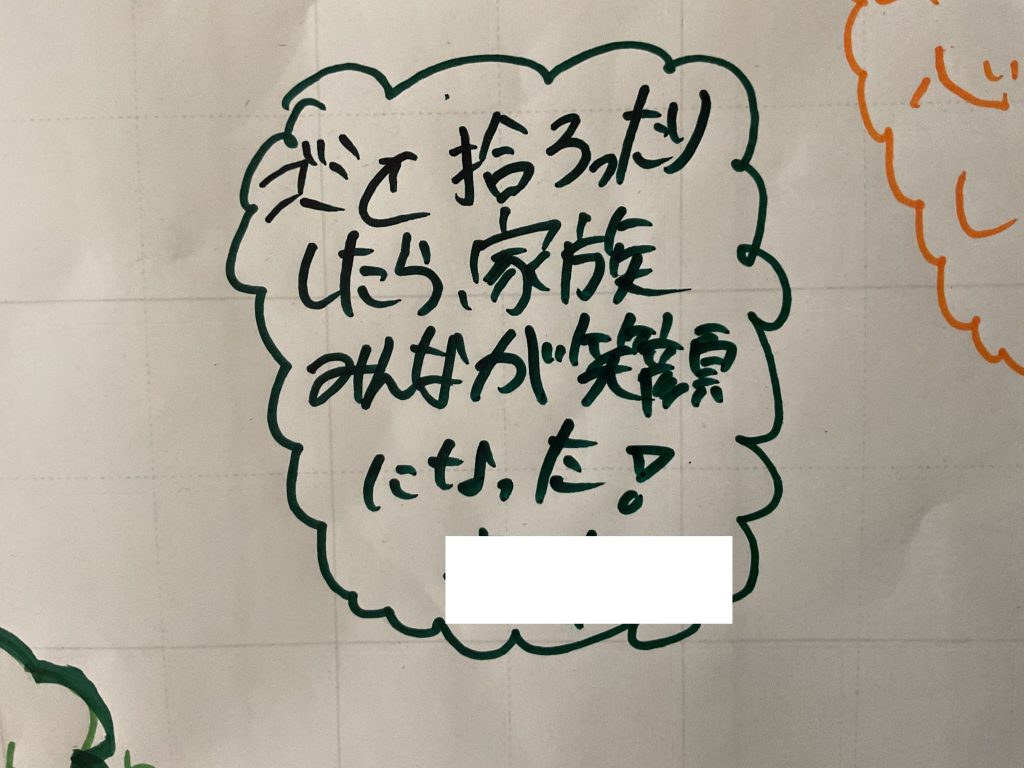 ゴミを拾ろったり
したら、家族
みんなが笑顔
になった!